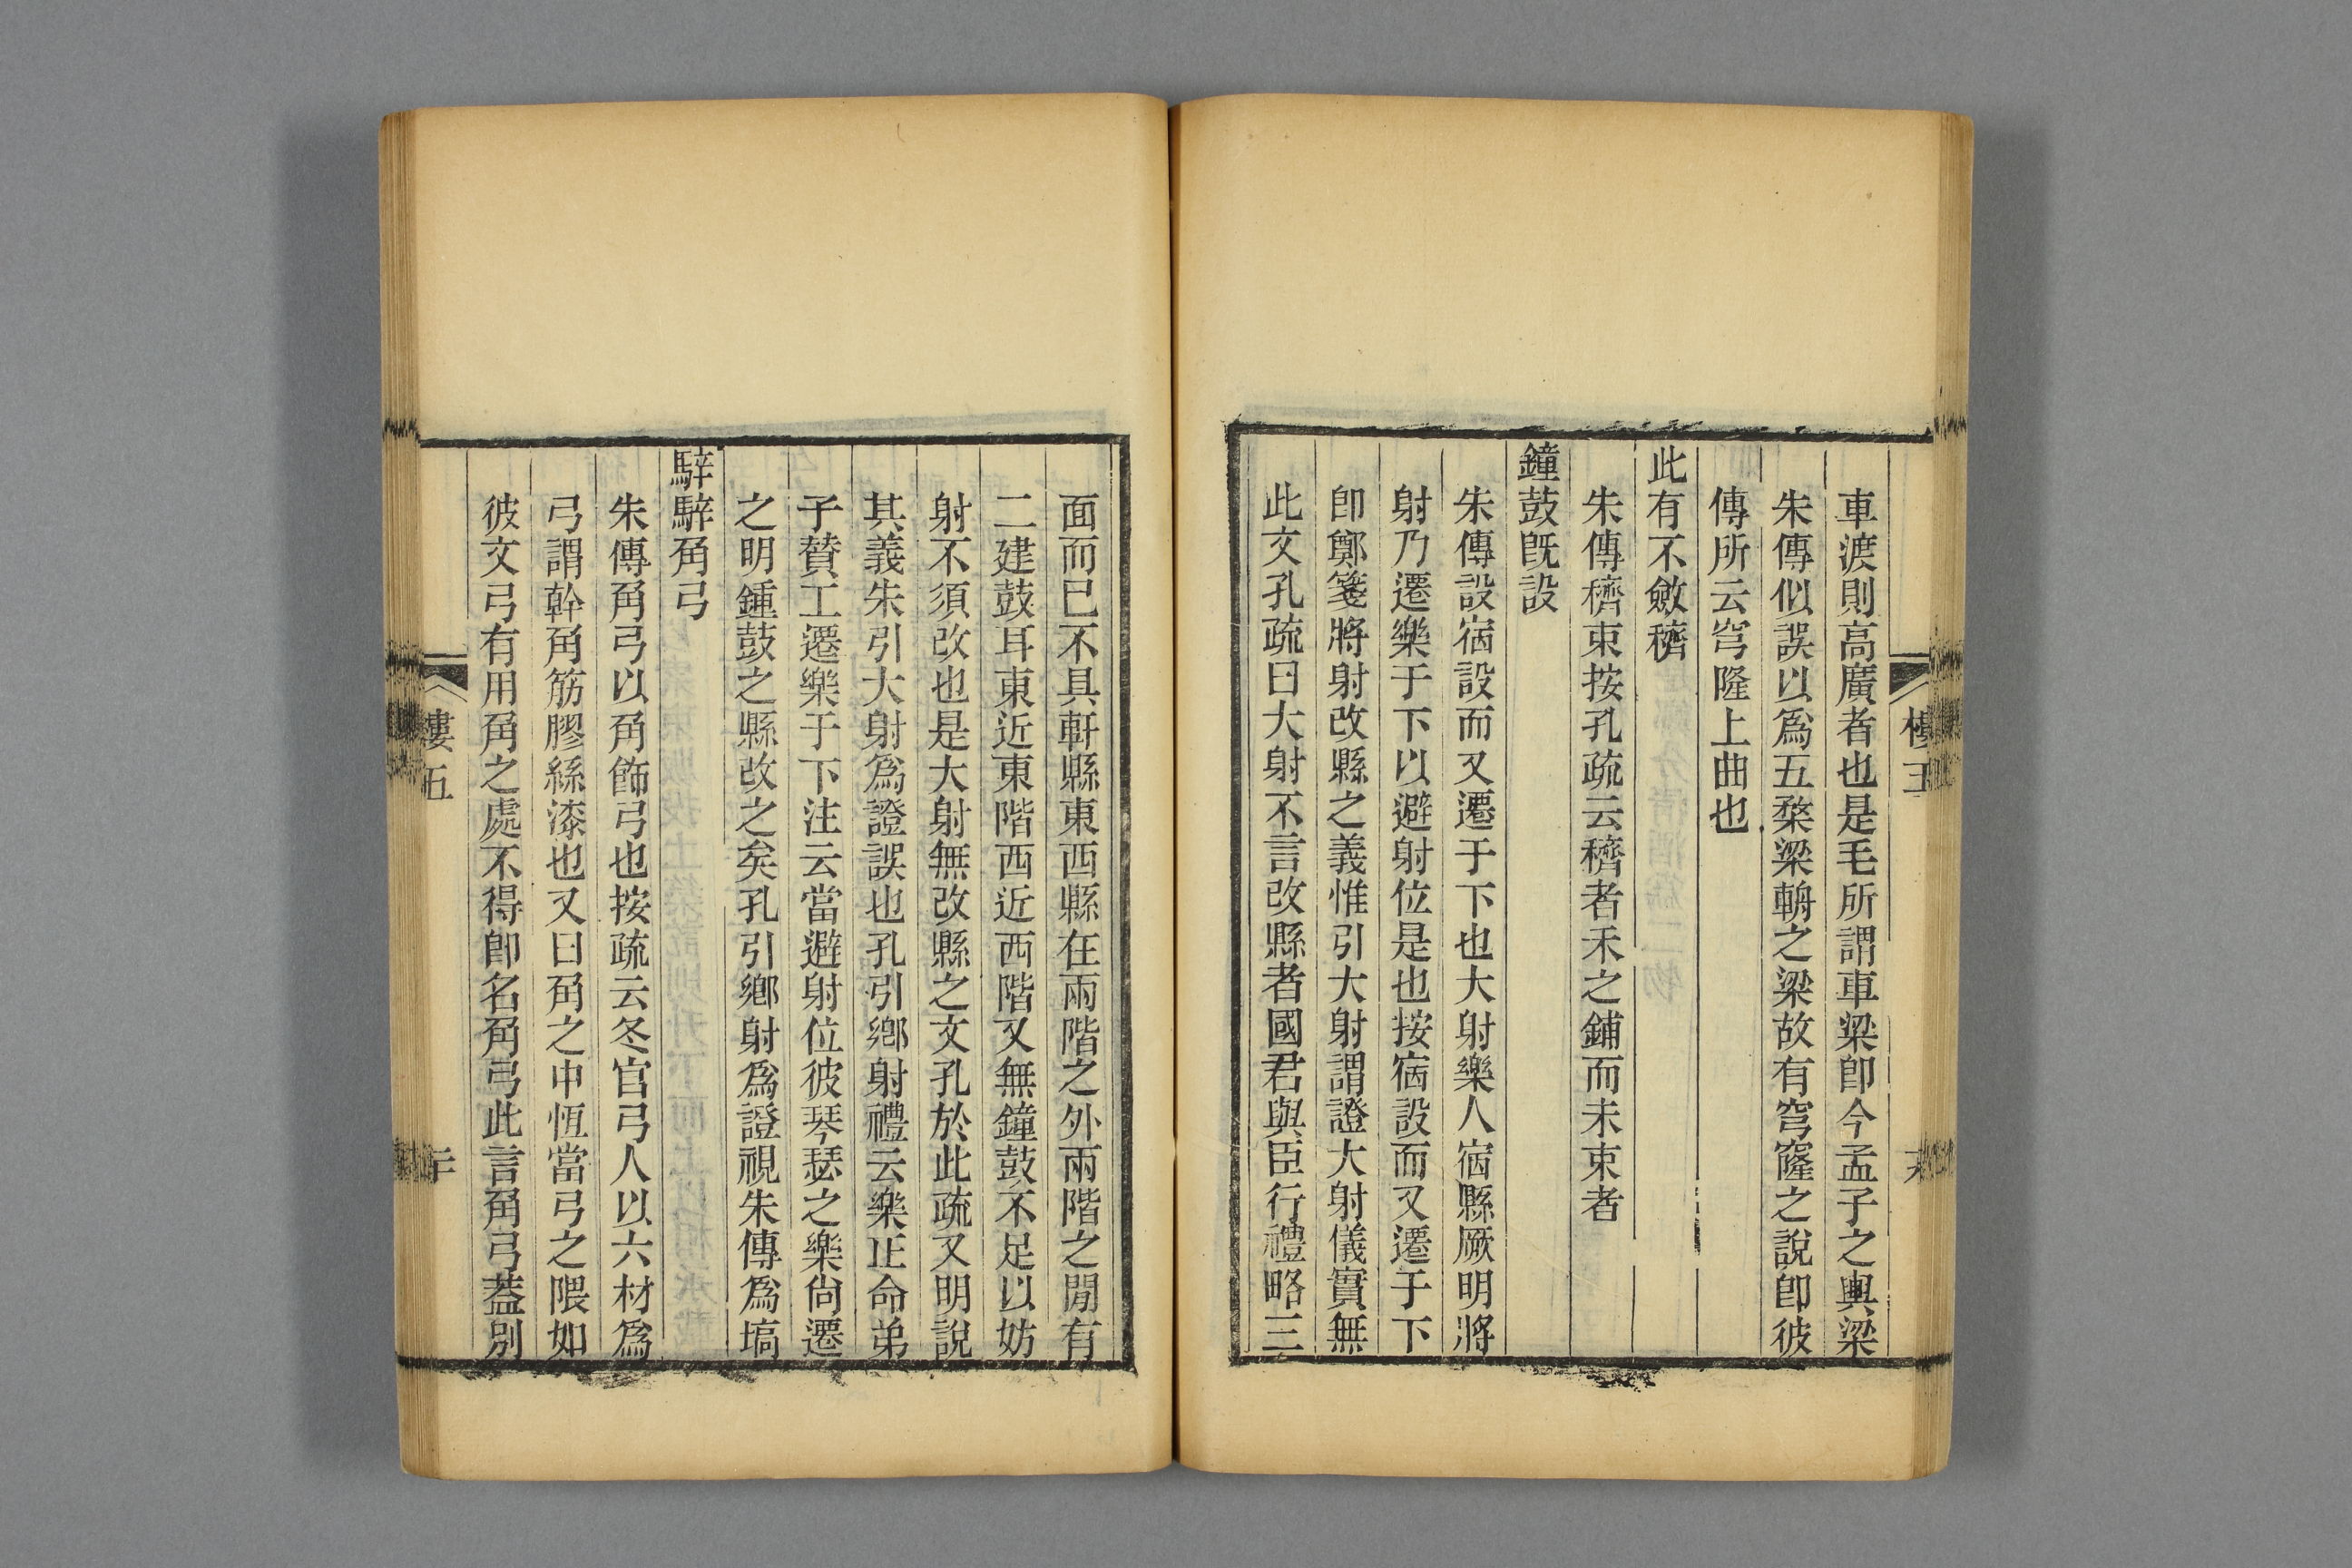 車渡則高廣者也是毛所謂車梁卽今孟子之輿梁
朱傳似誤以爲五楘梁輈之梁故有穹窿之說卽彼
傳所云穹隆上曲也
此有不斂穧
朱傳穧束按孔疏云穧者禾之鋪而未束者
鐘鼓旣設
朱傳設宿設而又遷于下也大射樂人宿縣厥明將
射乃遷樂于下以避射位是也按宿設而又遷于下
卽鄭箋將射改縣之義惟引大射謂證大射儀實無
此文孔疏曰大射不言改縣者國君與臣行禮略三
面而已不具軒縣東西縣在兩階之外兩階之閒有
二建鼓耳東近東階西近西階又無鐘鼓不足以妨
射不須改也是大射無改縣之文孔於此疏又明說
其義朱引大射爲證誤也孔引鄉射禮云樂正命弟
子贊工遷樂于下注云當避射位彼琴瑟之樂尙遷
之明鍾鼓之縣改之矣孔引鄉射爲證視朱傳爲塙
騂騂角弓
朱傳角弓以角飾弓也按疏云冬官弓人以六材爲
弓謂幹角筋膠絲漆也又曰角之中恆當弓之隈如
彼文弓有用角之處不得卽名角弓此言角弓蓋別
婁五